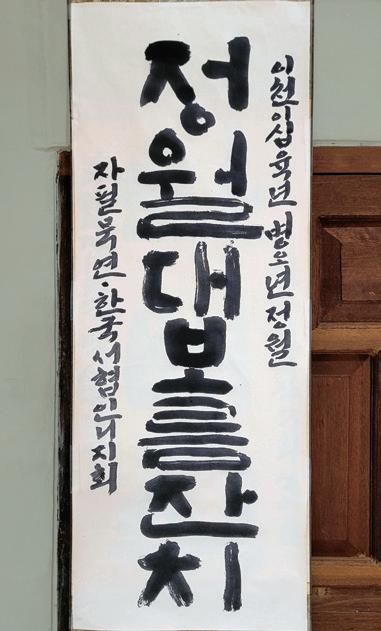 이천이십육년 병오년 정월
정월대보름잔치
자필묵연·한국서협인니지회